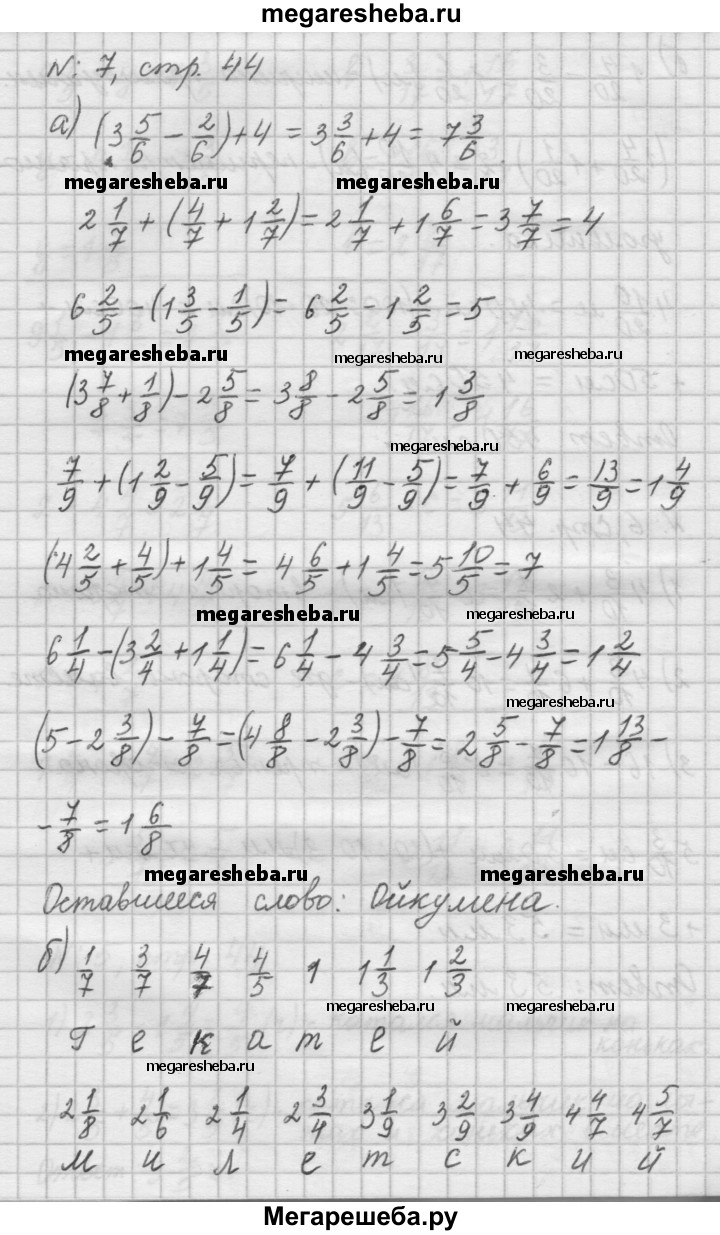 megaresheba.ru
№ 7, стр. 44
а) (3 5/6 − 2/6) + 4 = 3 3/6 + 4 = 7 3/6.
megaresheba.ru megaresheba.ru
2 1/7 + (4/7 + 1 2/7) = 2 1/7 + 1 6/7 = 3 7/7 = 4
6 2/5 − (1 3/5 − 1/5) = 6 2/5 − 1 2/5 = 5
megaresheba.ru megaresheba.ru megaresheba.ru
(3 7/8 + 1/8) − 2 5/8 = 3 8/8 − 2 5/8 = 1 3/8
megaresheba.ru
7/9 + (1 2/9 − 5/9) = 7/9 + (11/9 − 5/9) = 7/9 + 6/9 = 13/9 = 1 4/9
(4 2/5 + 4/5) + 1 4/5 = 4 6/5 + 1 4/5 = 5 10/5 = 7
megaresheba.ru megaresheba.ru
6 1/4 − (3 2/4 + 1 1/4) = 6 1/4 − 4 3/4 = 5 5/4 − 4 3/4 = 1 2/4
megaresheba.ru
(5 − 2 3/8) − 7/8 = (4 8/8 − 2 3/8) − 7/8 = 2 5/8 − 7/8 = 1 13/8 −
− 7/8 = 1 6/8
megaresheba.ru megaresheba.ru
Оставшееся слово: Ойкумена.
б) 1/7 3/7 4/7 4/5 1 1 1/3 1 2/3
megaresheba.ru megaresheba.ru
Г е к а т е й
megaresheba.ru
2 1/8 2 1/6 2 1/4 2 3/4 3 1/9 3 2/9 3 4/9 4 4/7 4 5/7
м и л е т с к и й
Мегарешеба.ру